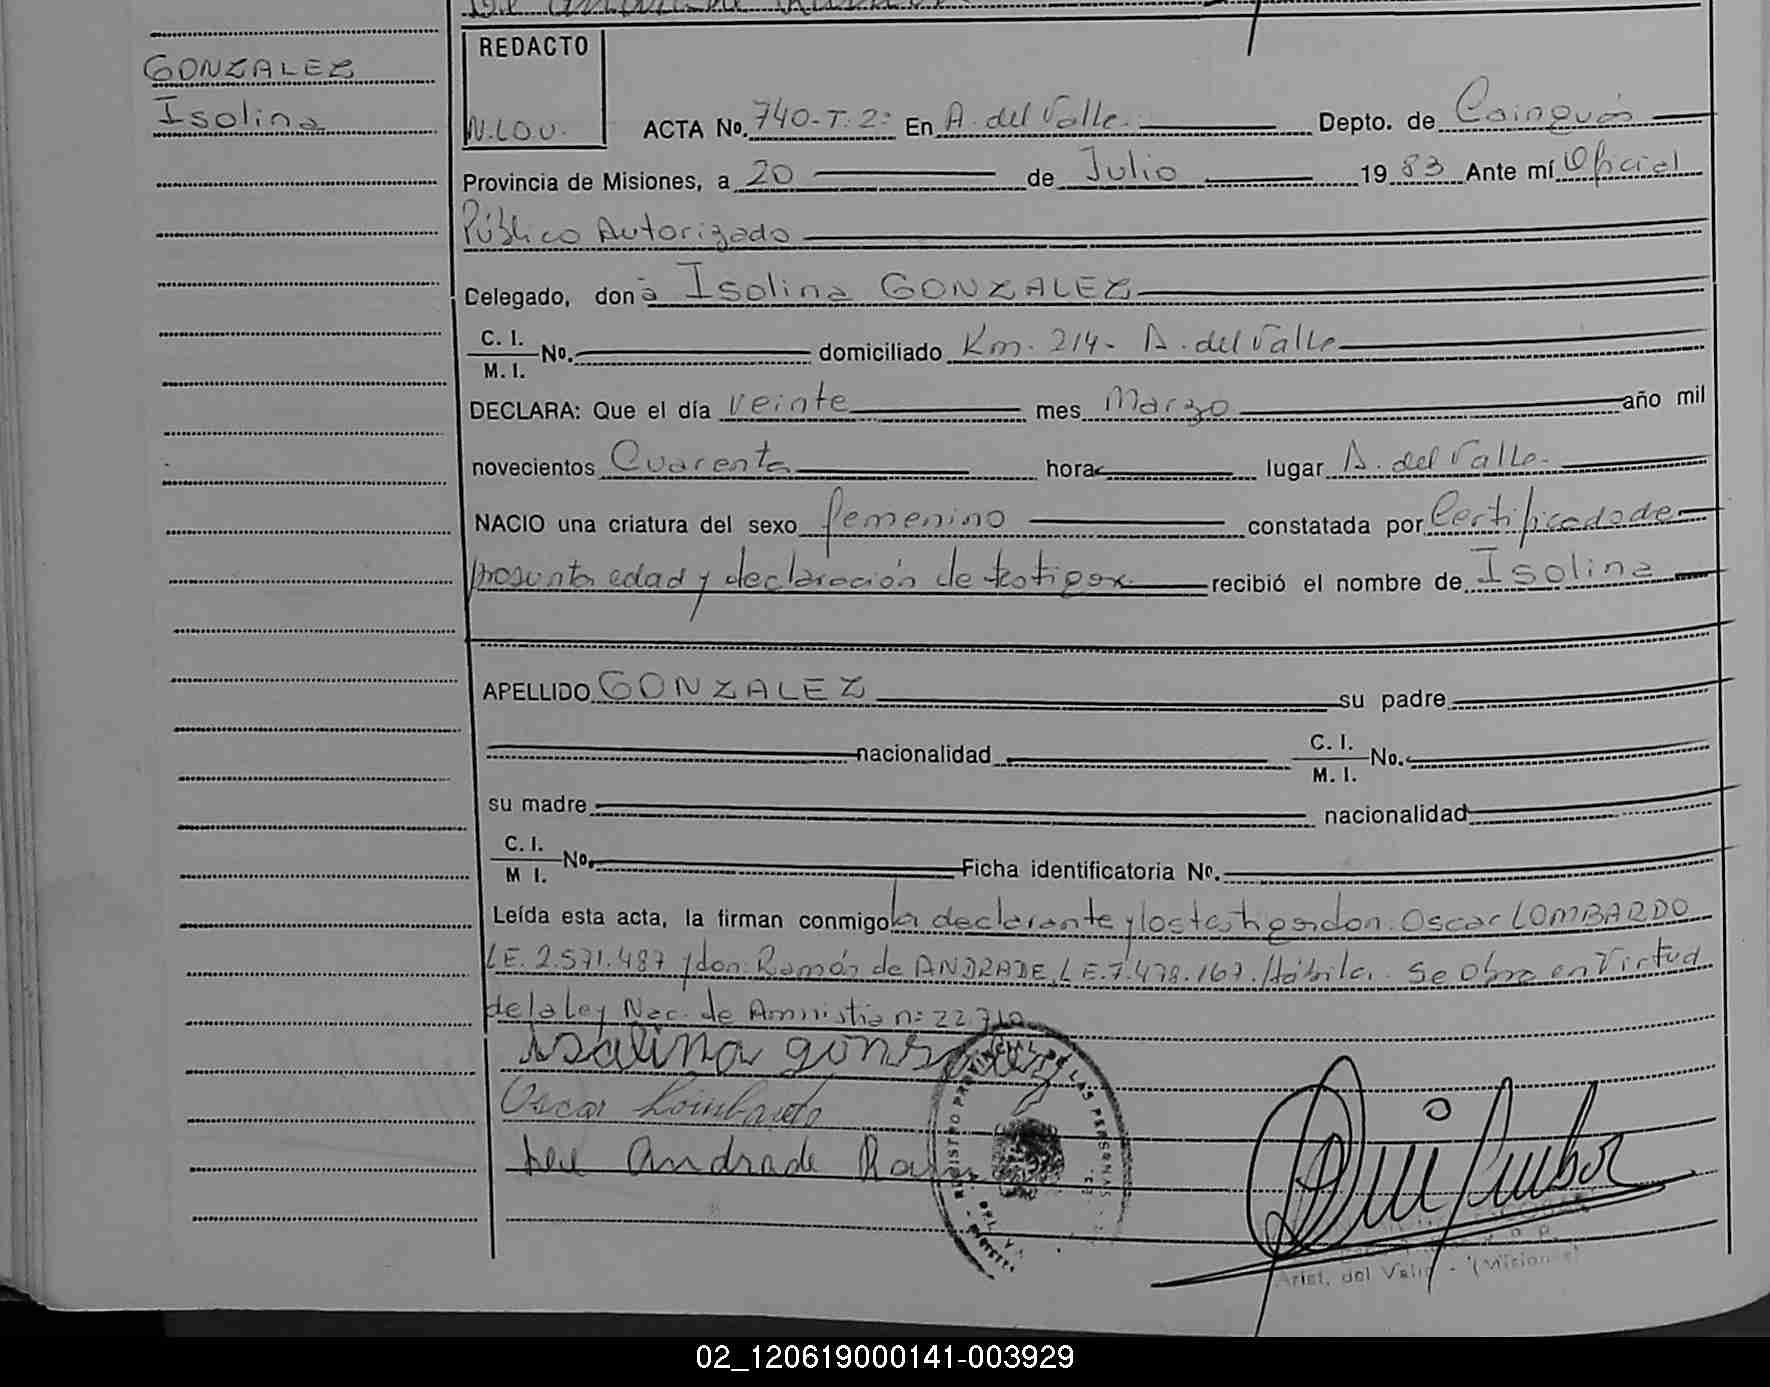 GONZALEZ
Isolina
REDACTO
N.LOU.
ACTA No. 740-T. 2: En A. del Valle. Depto. de Cainguás
Provincia de Misiones, a 20 de Julio 1983 Ante mí Oficial
Público Autorizado
Delegado, don a Isolina GONZALEZ
C. I.
M. I. No. domiciliado Km. 214- A. del Valle
DECLARA: Que el día veinte mes Marzo año mil
novecientos Cuarenta hora lugar A. del Valle.
NACIO una criatura del sexo femenino constatada por Certificado de
presunta edad y declaración de testigos recibió el nombre de Isolina
APELLIDO GONZALEZ su padre
nacionalidad C. I.
M. I. No.
su madre nacionalidad
C. I.
M I. No. Ficha identificatoria No.
Leída esta acta, la firman conmigo la declarante y los testigos don. Oscar LOMBARDO
L.E. 2.571.487 y don. Ramón de ANDRADE, L.E. 7.478.167. Hábiles. Se Obra en Virtud
de la ley Nac. de Amnistia n: 22.710
isolina gonsalez
Oscar Lombardo
Andrade
REGISTRO PROVINCIAL DE LAS PERSONAS
Arist. del Valle - (Misiones)
02_120619000141-003929